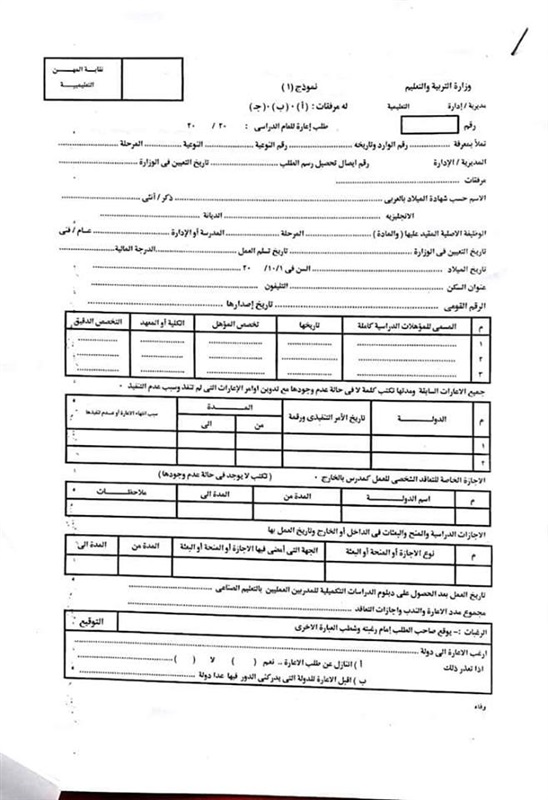 نقابة المهن
التعليمية
وزارة التربية والتعليم
نموذج (١)
مديرية / إدارة التعليمية
له مرفقات : (أ) ، (ب) ، (جـ)
رقم
طلب إعارة للعام الدراسى : ٢٠ / ٢٠
تملأ بمعرفة ............ رقم الوارد وتاريخه ............ رقم النوعية ............ النوعية ............ المرحلة ............
المديرية / الإدارة ............ رقم ايصال تحصيل رسم الطلب ............ تاريخ التعيين فى الوزارة ............
مرفقات ............
الاسم حسب شهادة الميلاد بالعربى ............ ذكر / أنثى ............
الانجليزيه ............ الديانة ............
الوظيفة الاصلية المقيد عليها ( والمادة ) ............ المرحلة ............ المدرسة أو الإدارة ............ عام / فنى
تاريخ التعيين فى الوزارة ............ تاريخ تسلم العمل ............ الدرجة المالية ............
تاريخ الميلاد ............ السن فى ١٠/١/ ٢٠ ............
عنوان السكن ............ التليفون ............
الرقم القومى ............ تاريخ إصدارها ............
م المسمى للمؤهلات الدراسية كاملة تاريخها تخصص المؤهل الكلية أو المعهد التخصص الدقيق
١ ............
٢ ............
٣ ............
جميع الاعارات السابقة ومدتها تكتب كلمة لا فى حالة عدم وجودها مع تدوين اوامر الإعارات التى لم تنفذ وسبب عدم التنفيذ .
م الدولـة تاريخ الأمر التنفيذى ورقمه المـدة سبب انتهاء الاعارة أو عدم تنفيذها
من الى
١
٢
الاجازة الخاصة للتعاقد الشخصى للعمل كمدرس بالخارج . ( تكتب لا يوجد فى حالة عدم وجودها )
م اسم الدولـة المدة من المدة الى ملاحظـات
الاجازات الدراسية والمنح والبعثات فى الداخل أو الخارج وتاريخ العمل بها
م نوع الاجازة أو المنحة أو البعثة الجهة التى أمضى فيها الاجازة أو المنحة او البعثة المدة من المدة الى
تاريخ العمل بعد الحصول على دبلوم الدراسات التكميلية للمدربين العمليين بالتعليم الصناعى ............
مجموع مدد الاعارة والندب واجازات التعاقد ............
الرغبات :- يوقع صاحب الطلب إمام رغبته وشطب العبارة الاخرى
التوقيع
ارغب الاعارة الى دولة ............
اذا تعذر ذلك
أ ) التنازل عن طلب الاعارة .. نعم ( ) لا ( ) ............
ب ) اقبل الاعارة للدولة التى يدركنى الدور فيها عدا دولة ............
وفاء